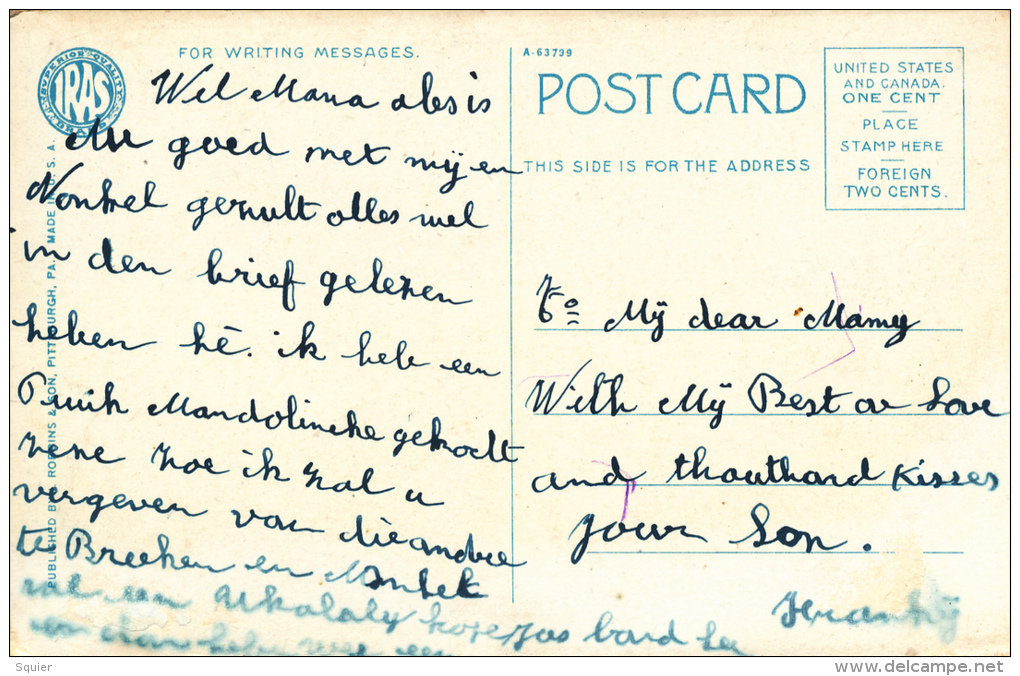 SUPERIOR QUALITY
IRAS
BRAND
FOR WRITING MESSAGES.
Wel Mama ales is
nu goed met mij en
Nonkel gezult olles wel
in den brief gelezen
heben hé. ik heb een
Puik Mandolineke gekocht
zene zoe ik zal u
vergeven van die andre
te Breeken en
zal een Ukalaly
en dan
PUBLISHED BY I. ROBBINS & SON, PITTSBURGH, PA. MADE IN U. S. A.
A-63799
POST CARD
THIS SIDE IS FOR THE ADDRESS
UNITED STATES
AND CANADA.
ONE CENT
PLACE
STAMP HERE
FOREIGN
TWO CENTS.
To My dear Mamy
With My Best ov Love
and thouthand Kisses
jour Son.
Franky
Squier
delcampe.net